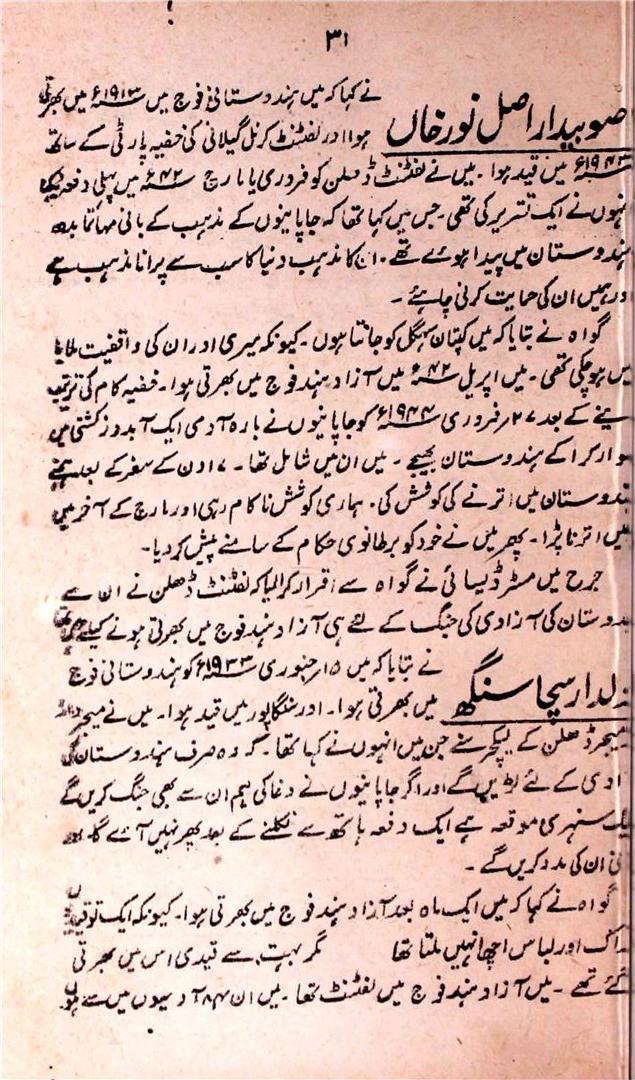 ۳۱
نے کہا کہ میں ہندوستانی فوج میں ۱۹۱۳ء میں بھرتی
صوبیدار اصل نور خاں
ہوا اور لفٹنٹ کرنل گیلانی کی خفیہ پارٹی کے ساتھ
۱۹۴۳ء میں قید ہوا۔ میں نے لفٹنٹ ڈھلن کو فروری یا مارچ ۴۲ء میں پہلی دفعہ دیکھا
نہوں نے ایک تقریر کی تھی۔ جس میں کہا تھا کہ جاپانیوں کے مذہب کے بانی مہاتما بدھ
ہندوستان میں پیدا ہوئے تھے۔ ان کا مذہب دنیا کا سب سے پرانا مذہب ہے
ور ہمیں ان کی حمایت کرنی چاہئے۔
گواہ نے بتایا کہ میں کپتان سہگل کو جانتا ہوں۔ کیونکہ میری اور ان کی واقفیت ملایا
میں ہو چکی تھی۔ میں اپریل ۴۲ء میں آزاد ہند فوج میں بھرتی ہوا۔ خفیہ کام کی تربیت
لینے کے بعد ۲۷ فروری ۱۹۴۴ء کو جاپانیوں نے بارہ آدمی ایک آبدوز کشتی میں
سوار کرا کے ہندوستان بھیجے۔ میں ان میں شامل تھا۔ ۱۷ دن کے سفر کے بعد ہم نے
ہندوستان میں اترنے کی کوشش کی۔ ہماری کوشش ناکام رہی اور مارچ کے آخر میں
ہمیں اترنا پڑا۔ پھر میں نے خود کو برطانوی حکام کے سامنے پیش کر دیا۔
جرح میں مسٹر ڈیسائی نے گواہ سے اقرار کرا لیا کہ لفٹنٹ ڈھلن نے ان سے
ہندوستان کی آزادی کی جنگ کے لئے ہی آزاد ہند فوج میں بھرتی ہونے کیلئے
نے بتایا کہ میں ۱۵ جنوری ۱۹۳۳ء کو ہندوستانی فوج
حولدار سچا سنگھ
میں بھرتی ہوا۔ اور سنگاپور میں قید ہوا۔ میں نے میجر
میجر ڈھلن کے لیکچر سنے جن میں انہوں نے کہا تھا۔ کہ وہ صرف ہندوستان کی
آزادی کے لئے لڑیں گے اور اگر جاپانیوں نے دغا کی ہم ان سے بھی جنگ کریں گے
ایک سنہری موقعہ ہے ایک دفعہ ہاتھ سے نکلنے کے بعد پھر نہیں آئے گا۔ اور
ان کی مدد کریں گے۔
گواہ نے کہا کہ میں ایک ماہ بعد آزاد ہند فوج میں بھرتی ہوا۔ کیونکہ ایک تو
خوراک اور لباس اچھا نہیں ملتا تھا مگر بہت سے قیدی اس میں بھرتی
گئے تھے۔ میں آزاد ہند فوج میں لفٹنٹ تھا۔ میں ان ۸۴ آدمیوں میں سے ہوں